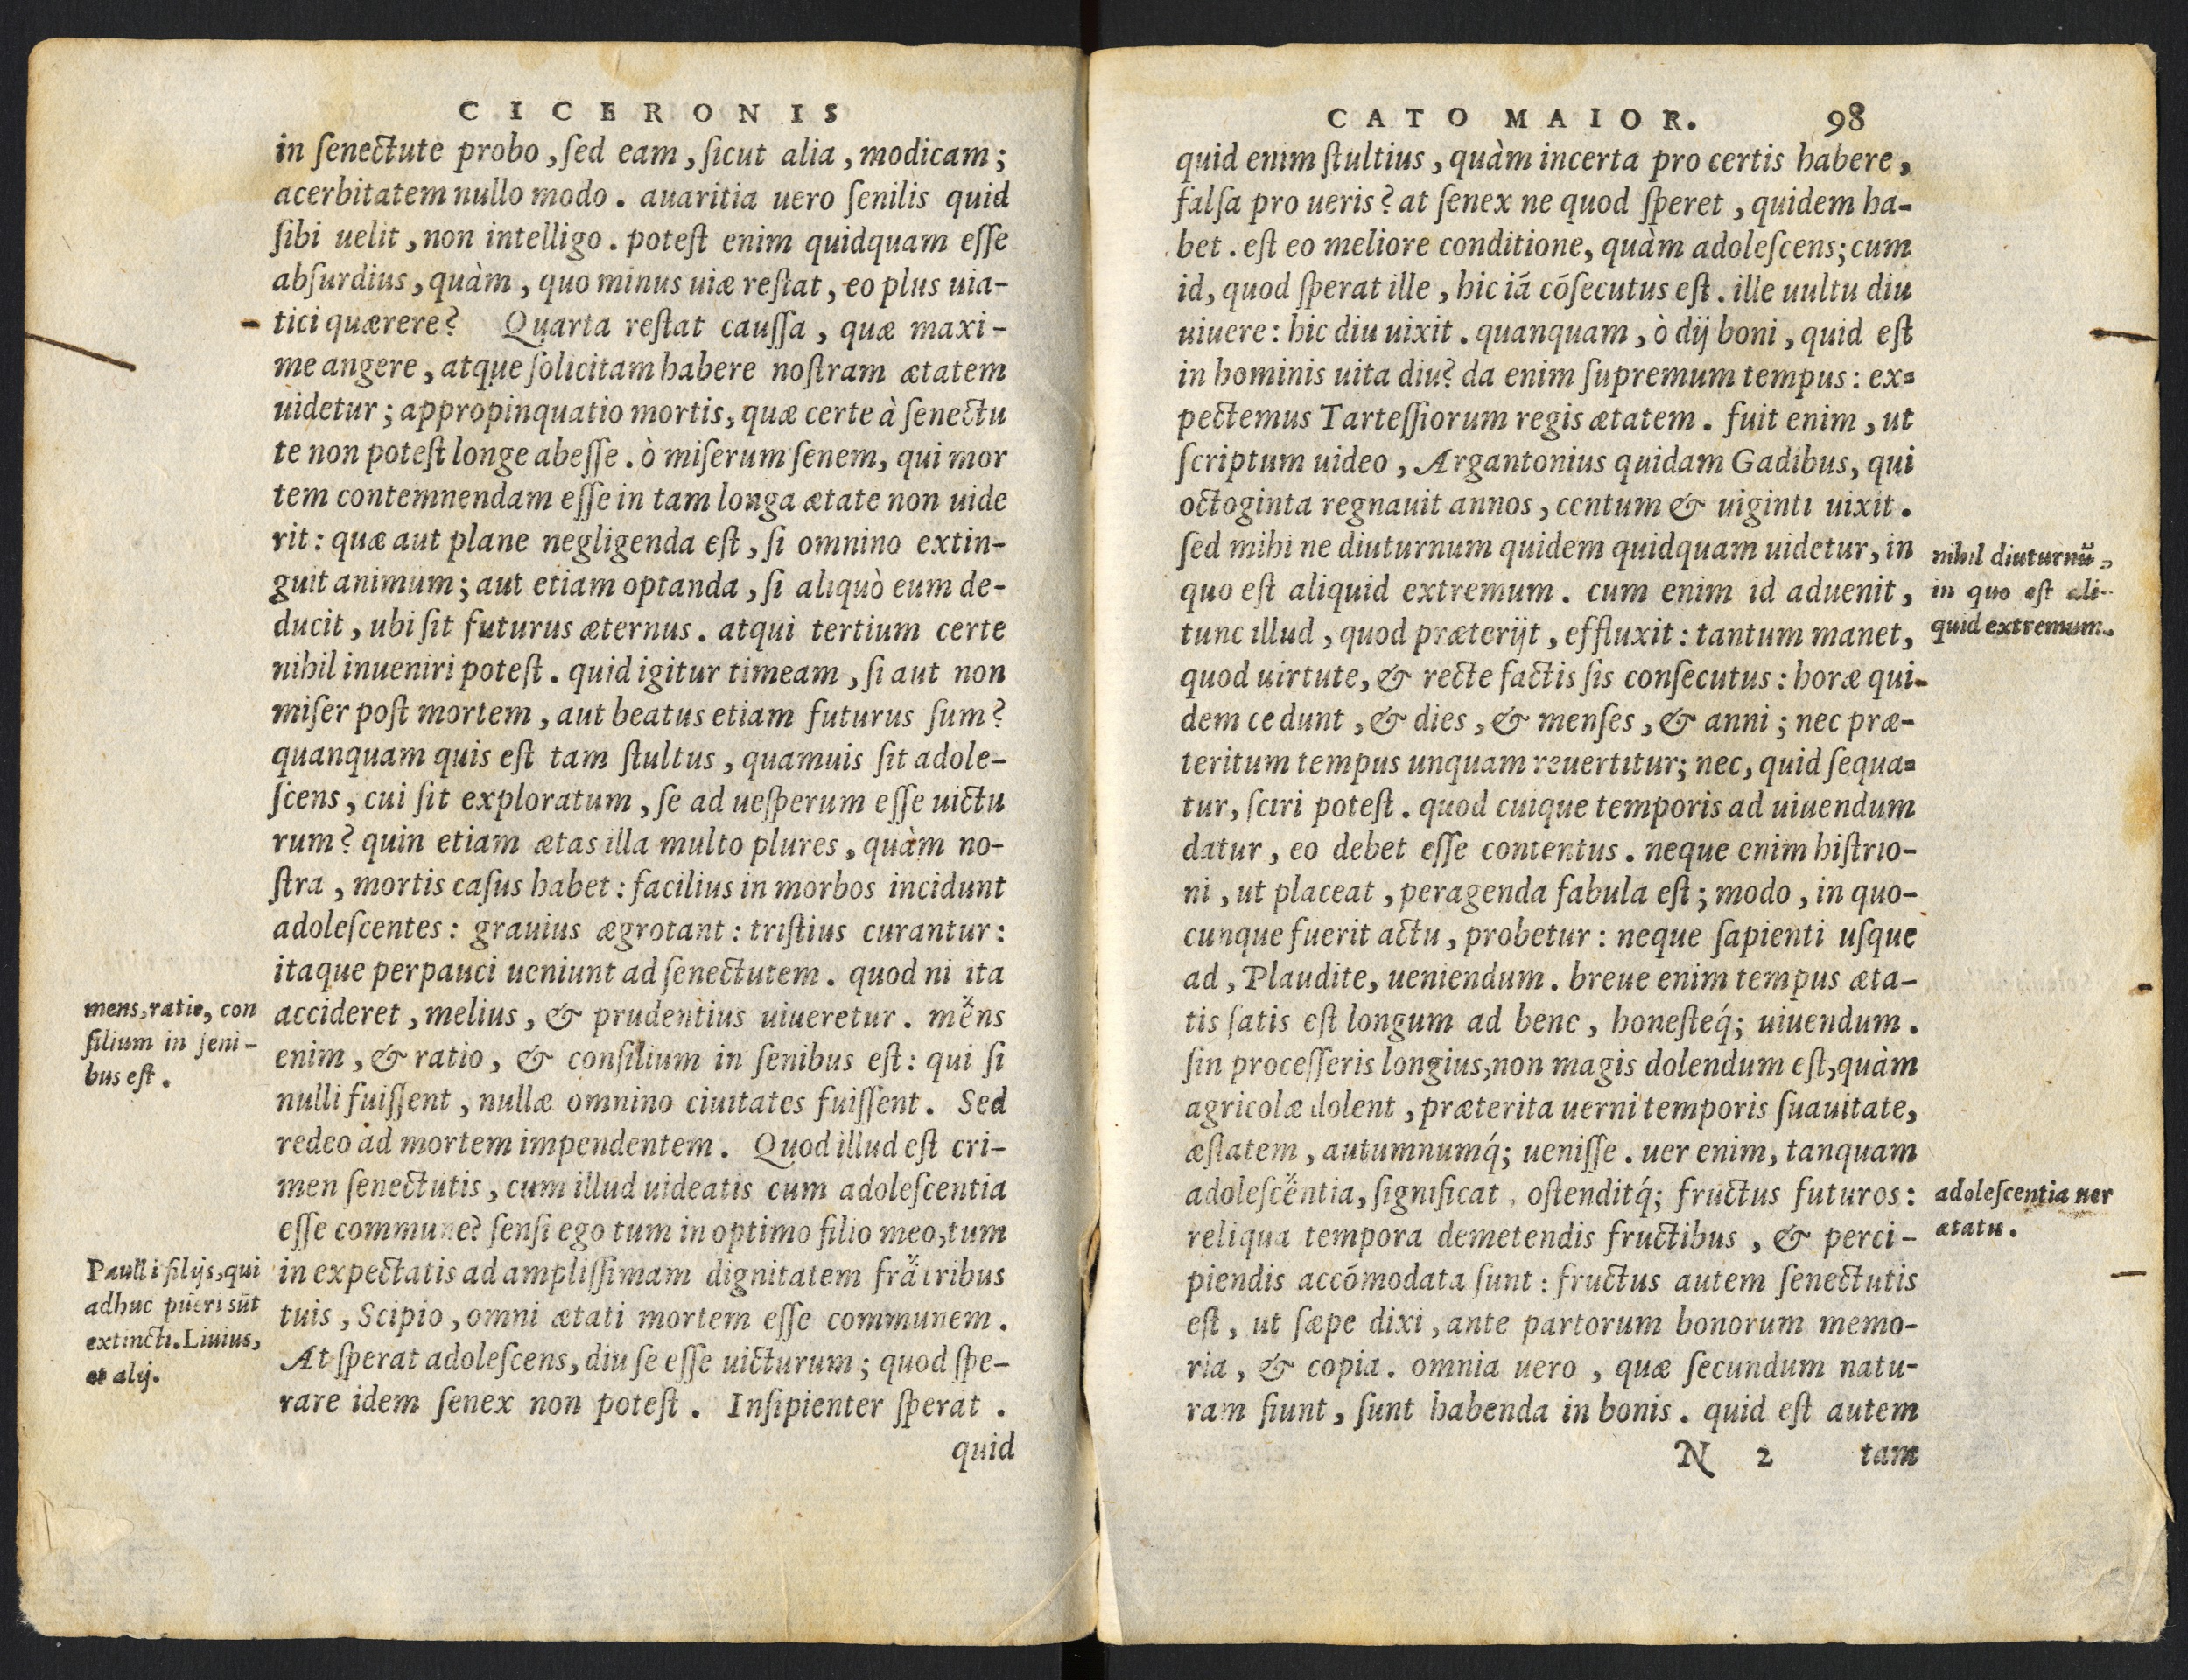 CICERONIS
in ſenectute probo, ſed eam, ſicut alia, modicam;
acerbitatem nullo modo. auaritia uero ſenilis quid
ſibi uelit, non intelligo. poteſt enim quidquam eſſe
abſurdius, quàm, quo minus uiæ reſtat, eo plus uia-
tici quærere? Quarta reſtat cauſſa, quæ maxi-
me angere, atque ſolicitam habere noſtram ætatem
uidetur; appropinquatio mortis, quæ certe à ſenectu
te non poteſt longe abeſſe. ò miſerum ſenem, qui mor
tem contemnendam eſſe in tam longa ætate non uide
rit: quæ aut plane negligenda eſt, ſi omnino extin-
guit animum; aut etiam optanda, ſi aliquò eum de-
ducit, ubi ſit futurus æternus. atqui tertium certe
nihil inueniri poteſt. quid igitur timeam, ſi aut non
miſer poſt mortem, aut beatus etiam futurus ſum?
quanquam quis eſt tam ſtultus, quamuis ſit adole-
ſcens, cui ſit exploratum, ſe ad ueſperum eſſe uictu
rum? quin etiam ætas illa multo plures, quàm no-
ſtra, mortis caſus habet: facilius in morbos incidunt
adoleſcentes: grauius ægrotant: triſtius curantur:
itaque perpauci ueniunt ad ſenectutem. quod ni ita
accideret, melius, & prudentius uiueretur. mens
enim, & ratio, & conſilium in ſenibus eſt: qui ſi
nulli fuiſſent, nullæ omnino ciuitates fuiſſent. Sed
redeo ad mortem impendentem. Quod illud eſt cri-
men ſenectutis, cum illud uideatis cum adoleſcentia
eſſe commune? ſenſi ego tum in optimo filio meo, tum
in expectatis ad ampliſſimam dignitatem fratribus
tuis, Scipio, omni ætati mortem eſſe communem.
At ſperat adoleſcens, diu ſe eſſe uicturum; quod ſpe-
rare idem ſenex non poteſt. Inſipienter ſperat.
quid
mens, ratio, con
ſilium in ſeni-
bus eſt.
Paulli filijs, qui
adhuc pueri sūt
extincti. Liuius,
et alij.
CATO MAIOR. 98
quid enim ſtultius, quàm incerta pro certis habere,
falſa pro ueris? at ſenex ne quod ſperet, quidem ha-
bet. eſt eo meliore conditione, quàm adoleſcens; cum
id, quod ſperat ille, hic iã cōſecutus eſt. ille uult diu
uiuere: hic diu uixit. quanquam, ò dij boni, quid eſt
in hominis uita diu? da enim ſupremum tempus: ex=
pectemus Tarteſſiorum regis ætatem. fuit enim, ut
ſcriptum uideo, Argantonius quidam Gadibus, qui
octoginta regnauit annos, centum & uiginti uixit.
ſed mihi ne diuturnum quidem quidquam uidetur, in
quo eſt aliquid extremum. cum enim id aduenit,
tunc illud, quod præterijt, effluxit: tantum manet,
quod uirtute, & recte factis ſis conſecutus: horæ qui-
dem cedunt, & dies, & menſes, & anni; nec præ-
teritum tempus unquam reuertitur; nec, quid ſequa=
tur, ſciri poteſt. quod cuique temporis ad uiuendum
datur, eo debet eſſe contentus. neque enim hiſtrio-
ni, ut placeat, peragenda fabula eſt; modo, in quo-
cunque fuerit actu, probetur: neque ſapienti uſque
ad, Plaudite, ueniendum. breue enim tempus æta-
tis ſatis eſt longum ad bene, honeſteq́; uiuendum.
ſin proceſſeris longius, non magis dolendum eſt, quàm
agricolæ dolent, præterita uerni temporis ſuauitate,
æſtatem, autumnumq́; ueniſſe. uer enim, tanquam
adoleſcentia, ſignificat, oſtenditq́; fructus futuros:
reliqua tempora demetendis fructibus, & perci-
piendis accōmodata ſunt: fructus autem ſenectutis
eſt, ut ſæpe dixi, ante partorum bonorum memo-
ria, & copia. omnia uero, quæ ſecundum natu-
ram fiunt, ſunt habenda in bonis. quid eſt autem
N 2 tam
nihil diuturnū,
in quo eſt ali-
quid extremum.
adoleſcentia uer
ætatis.